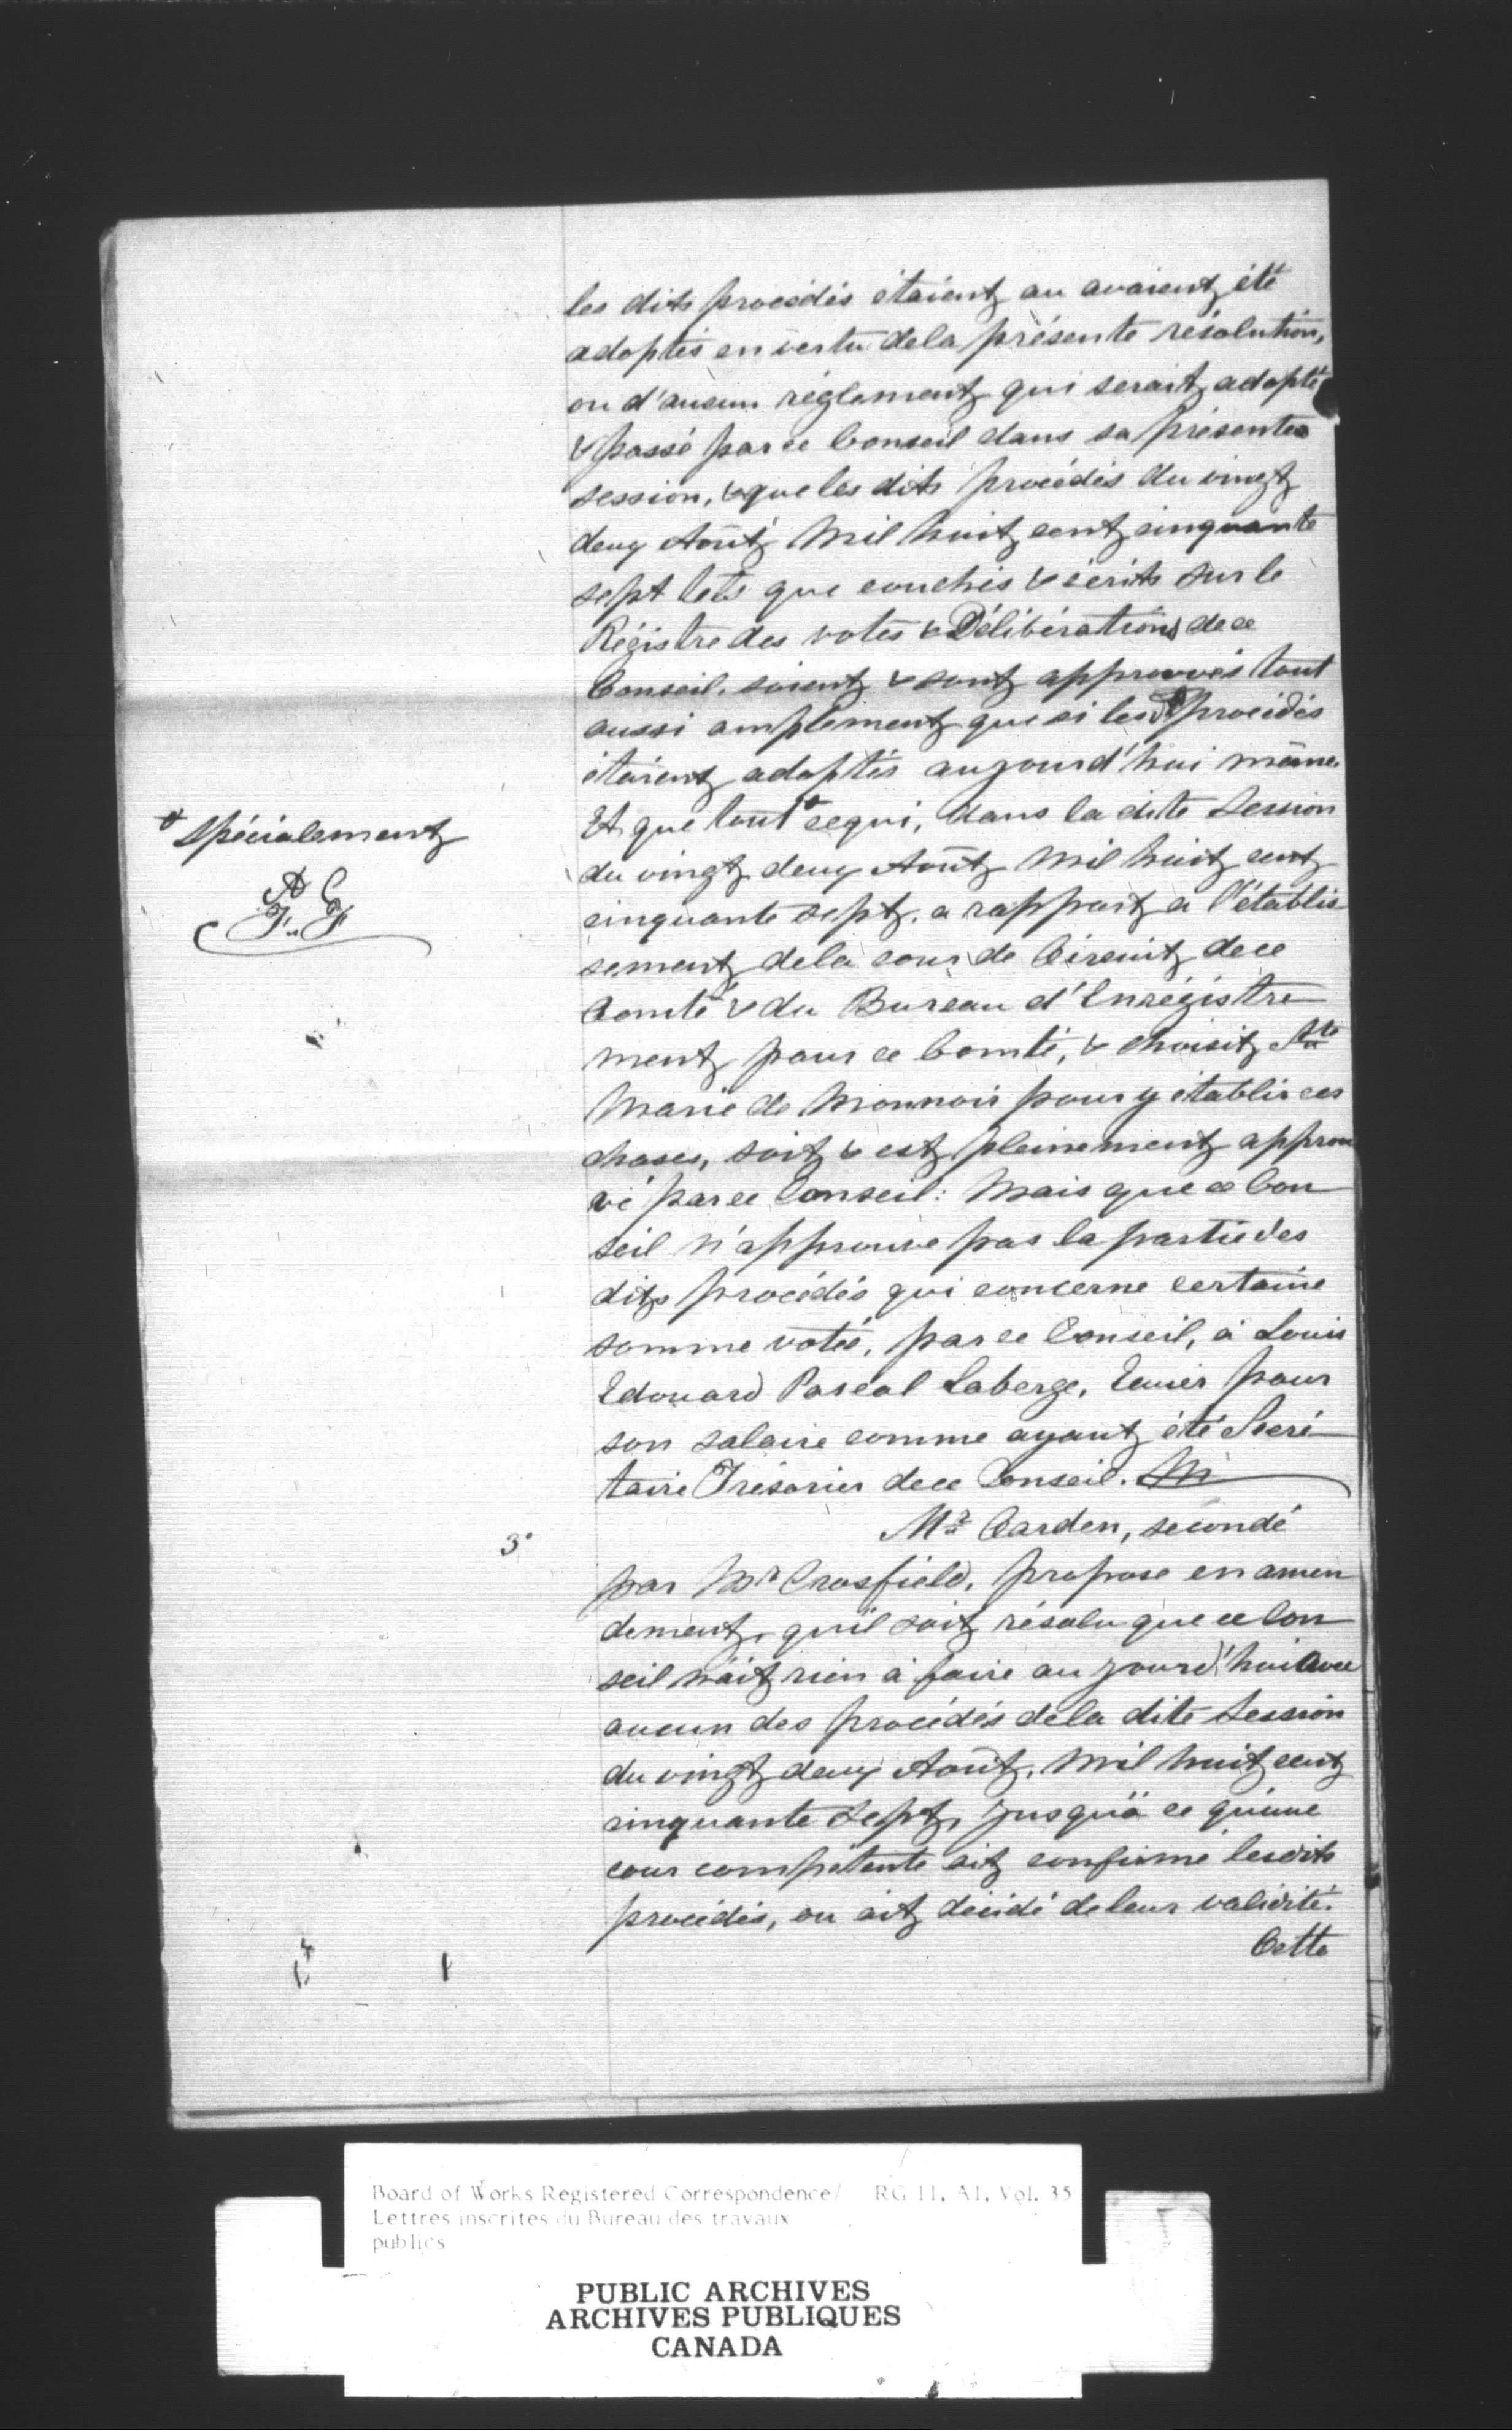 les dits procédés étaient ou avaient été
adoptés en vertu de la présente résolution,
ou d'aucun réglement qui serait adopté
& passé par ce Conseil dans sa présente
session, & que les dits procédés du vingt
deux Août Mil huit cent cinquante
sept tels que couchés & écrits sur le
Régistre des votes & Délibérations de ce
Conseil, soient & sont approuvés tout
aussi amplement que si les procédés
étaient adoptés aujourd'hui même.
Et que tout + ce qui, dans la dite Session
+ Spécialement
A G
F. F
du vingt deux Août Mil huit cent
cinquante sept, a rapport a l'établis
sement de la cour de Circuit de ce
Comté & du Bureau d'Enrégistre
ment pour ce Comté, & choisit Ste
Marie de Monnoir pour y établir ces
choses, soit & est pleinement approu
vé par ce Conseil: Mais que ce Con
seil n'approuve pas la partie des
dits procédés qui concerne certaine
somme votée, par ce Conseil, à Louis
Edouard Pascal Laberge, Ecuier pour
son salaire comme ayant été Secré
taire Trésorier de ce Conseil. M
3° Mr Carden, secondé
par Mr Crosfield, propose en amen
dement, qu'il soit résolu que ce Con
seil n'ait rien à faire aujourd'hui avec
aucun des procédés de la dite Session
du vingt deux Août, Mil huit cent
cinquante Sept, jusqu'à ce qu'une
cour compétente ait confirmé les dits
procédés, ou ait décidé de leur validité.
Cette
Board of Works Registered Correspondence/ RG 11, A1, Vol. 35
Lettres inscrites du Bureau des travaux
publics
PUBLIC ARCHIVES
ARCHIVES PUBLIQUES
CANADA